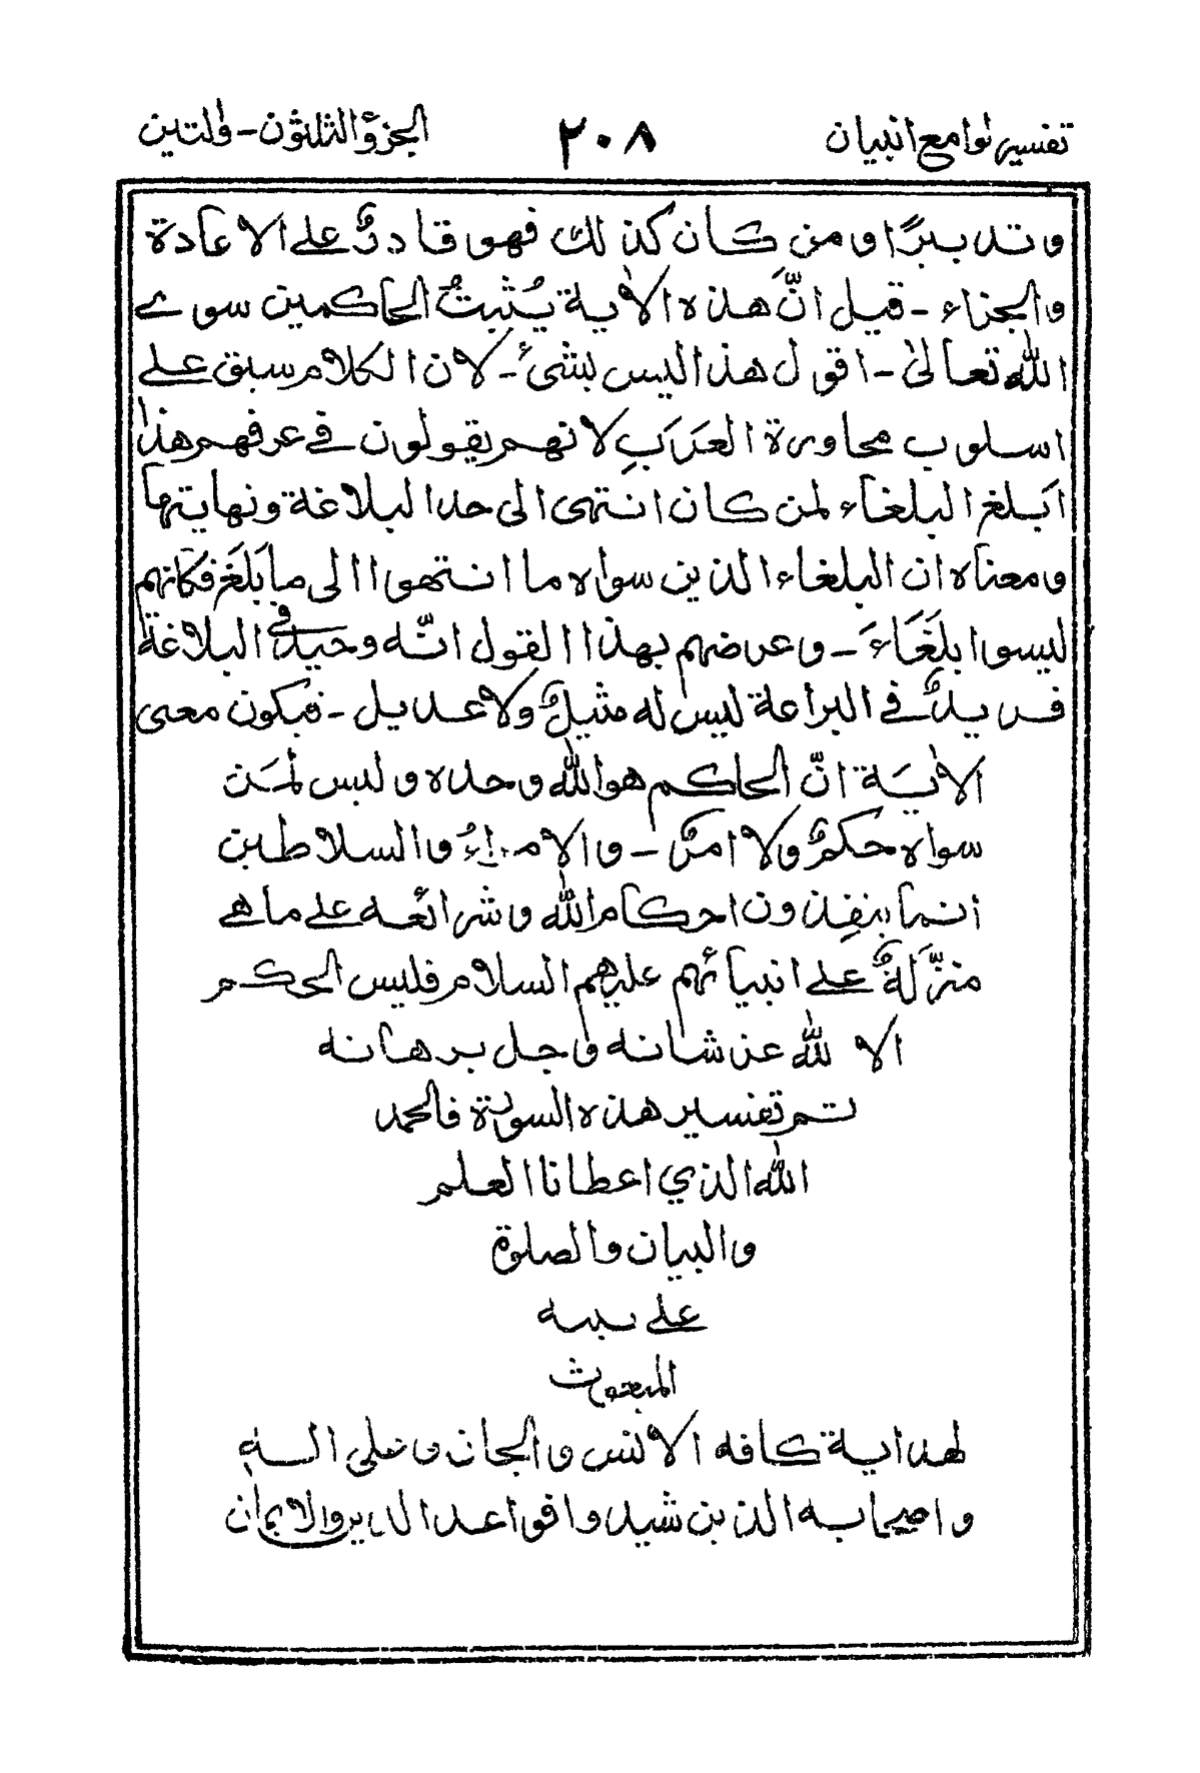 تفسير لوامع البيان ٢٠٨ الجزؤ الثلثون - والتين
وتدبيرًا ومن كان كذلك فهو قادرٌ على الاعادة
والجزاء - قيل انَّ هذه الاٰية يُثبتُ الحاكمين سوى
الله تعالىٰ - اقول هذا ليس بشئ - لان الكلام سبق على
اسلوب محاورة العَرَبِ لانهم يقولون في عرفهم هذا
اَبلغ البلغاء لمن كان انتهى الى حد البلاغة ونهايتها
ومعناه ان البلغاء الذين سواه ما انتهوا الى ما بَلَغَ فكانهم
ليسوا بلَغَاءَ - وعرضهم بهذا القول انّه وحيد في البلاغة
فريدٌ في البراعة ليس له مثيلٌ ولا عديل - فيكون معنى
الاٰيَة انّ الحاكم هو الله وحده وليس لمَن
سواه حكمٌ ولا امرٌ - والامراءُ والسلاطين
انما ينفِذون احكام الله وشرائعه على ما هي
منزَّلةٌ على انبيائهم عليهم السلام فليس الحكم
الا لله عز شانه وجل برهانه
تم تفسير هذه السورة فالحمد
الله الذي اعطانا العلم
والبيان والصلوة
على نبيه
المبعوث
لهداية كافه الانس والجان وعلى اله
واصحابه الذين شيدوا قواعد الدين والايمان